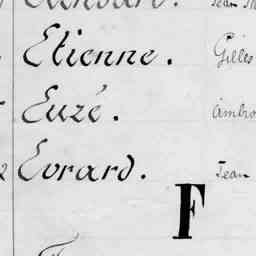 Etienne. Gilles
Euzé. Ambro
2 Evrard. Jean
F